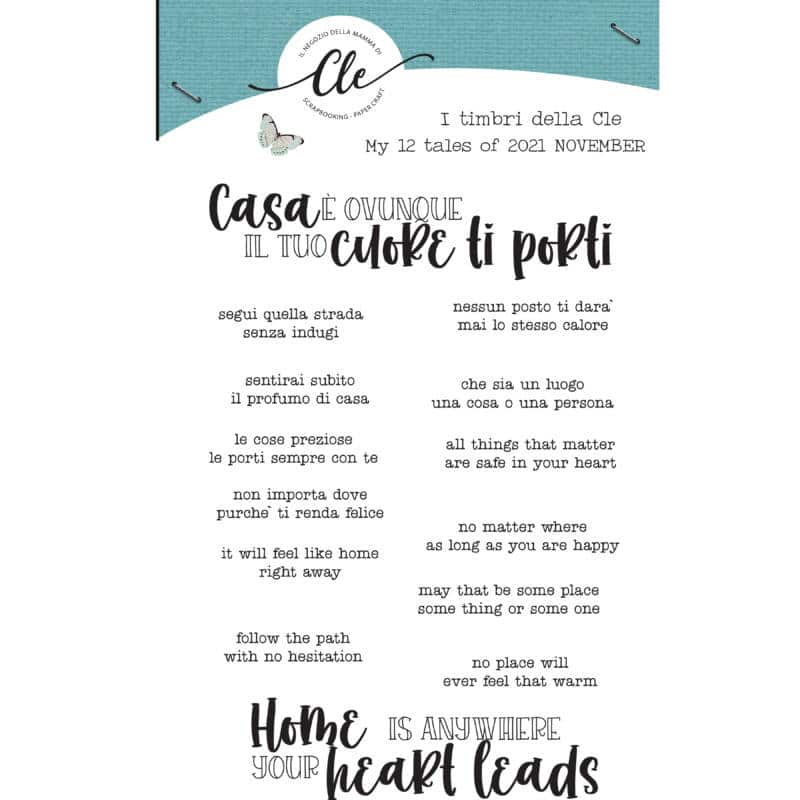 IL NEGOZIO DELLA MAMMA DI
Cle
SCRAPBOOKING - PAPER CRAFT
I timbri della Cle
My 12 tales of 2021 NOVEMBER
Casa È OVUNQUE
IL TUO CUORE ti porti
segui quella strada
senza indugi
nessun posto ti dara`
mai lo stesso calore
sentirai subito
il profumo di casa
che sia un luogo
una cosa o una persona
le cose preziose
le porti sempre con te
all things that matter
are safe in your heart
non importa dove
purche` ti renda felice
no matter where
as long as you are happy
it will feel like home
right away
may that be some place
some thing or some one
follow the path
with no hesitation
no place will
ever feel that warm
Home IS ANYWHERE
YOUR heart leads